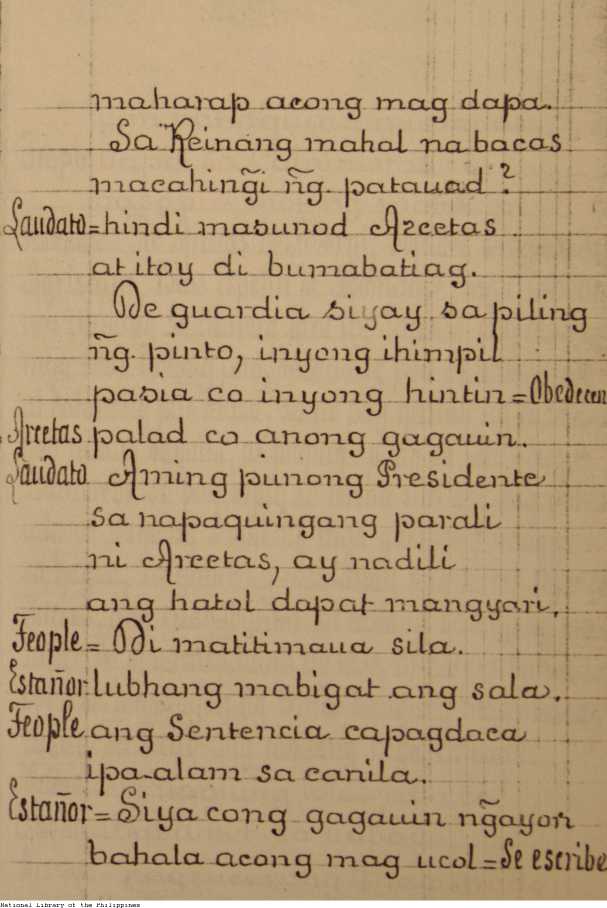 maharap acong mag dapa.
Sa Reinang mahal na bacas
macahing̃i ñg. patauad?
Laudato=hindi masunod Arcetas
at itoy di bumabatiag.
De guardia siyay sa piling
ñg. pinto, inyong ihimpil
pasia co inyong hintin=Obedecen
Arcetas palad co anong gagauin.
Laudato Aming punong Presidente
sa napaquingang parali
ni Arcetas, ay nadili
ang hatol dapat mangyari.
Feople= Di matitimaua sila.
Estañor lubhang mabigat ang sala.
Feople ang Sentencia capagdaca
ipa-alam sa canila.
Estañor=Siya cong gagauin ng̃ayon
bahala acong mag ucol=Se escribe
National Library of the Philippines